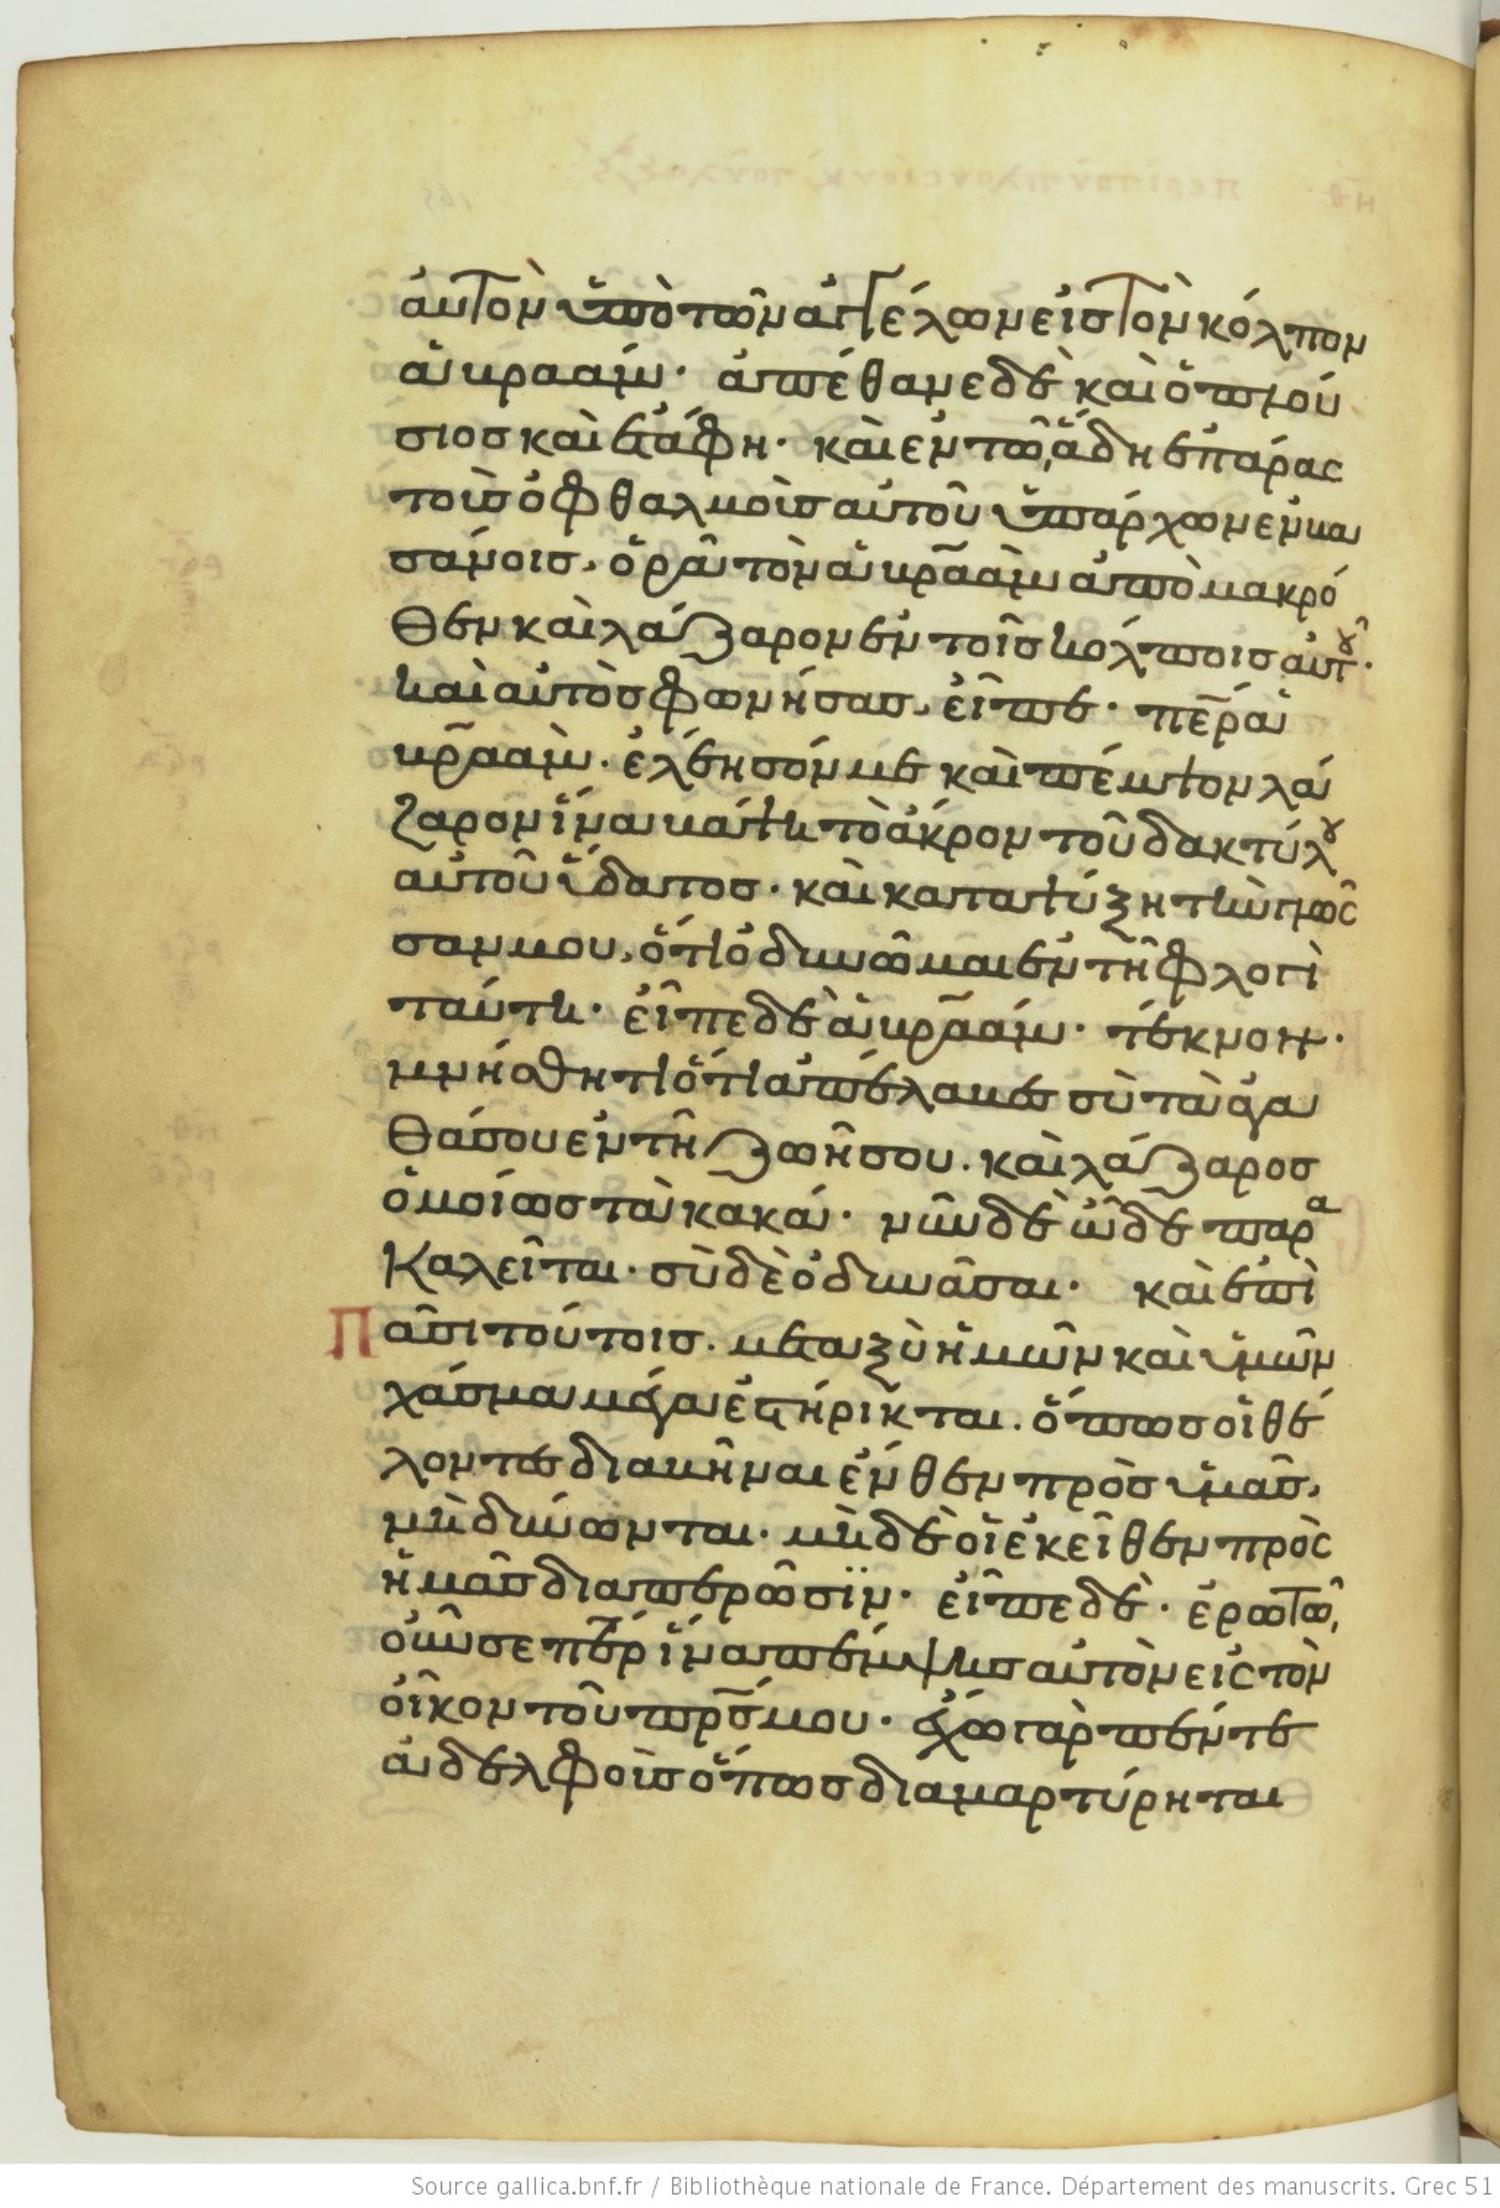 αυτὸν ὑπὸ τῶν ἀγγέλων εἰς τὸν κόλπον
ἀβραάμ· ἀπέθανε δὲ καὶ ὁ πλού
σιος καὶ ἐτάφη· καὶ ἐν τῶ ἅδη ἐπάρας
τοὺς ὀφθαλμοὺς αὐτοῦ ὑπάρχων ἐν βα
σάνοις, ὁρᾶ τὸν ἀβραὰμ ἀπὸ μακρό
θεν καὶ λάζαρον ἐν τοῖς κόλποις αὐτοῦ·
καὶ αὐτὸς φωνήσας, εἶπε· περ ἀ
βραὰμ· ἐλέησόν με καὶ πέμψον λά
ζαρον ἵνα βάψη τὸ ἄκρον τοῦ δακτύλου
αὐτοῦ ὕδατος· καὶ καταψύξη τὴν γλῶς
σαν μου, ὅτι ὀδυνῶμαι ἐν τῆ φλογὶ
ταύτη· εἶπε δὲ ἀβραάμ· τέκνον·
μνήσθητι ὅτι ἀπέλαβες σὺ τὰ ἀγα
θά σου ἐν τῆ ζωῆ σου· καὶ λάζαρος
ὁμοίως τὰ κακά· νῦν δὲ ὧδε παρα
καλεῖται· σὺ δὲ ὀδυνᾶσαι· καὶ ἐπὶ
Πᾶσι τούτοις· μεταξὺ ἡμῶν καὶ ὑμῶν
χάσμα μέγα ἐστήρικται· ὅπως οἱ θέ
λοντες διαβῆναι ἔνθεν πρὸς ὑμᾶς,
μὴ δύνωνται· μὴ δὲ οἱ ἐκεῖθεν πρὸς
ἡμᾶς διαπερῶσϊν· εἶπε δὲ· ἐρωτῶ
οὖν σε πέρ ἵνα πέμψης αὐτὸν εἰς τὸν
οἶκον τοῦ πρς μου· ἔχω γὰρ πέντε
ἀδελφοὺς ὅπως διαμαρτύρηται
Source gallica.bnf.fr / Bibliothèque nationale de France. Département des manuscrits. Grec 51